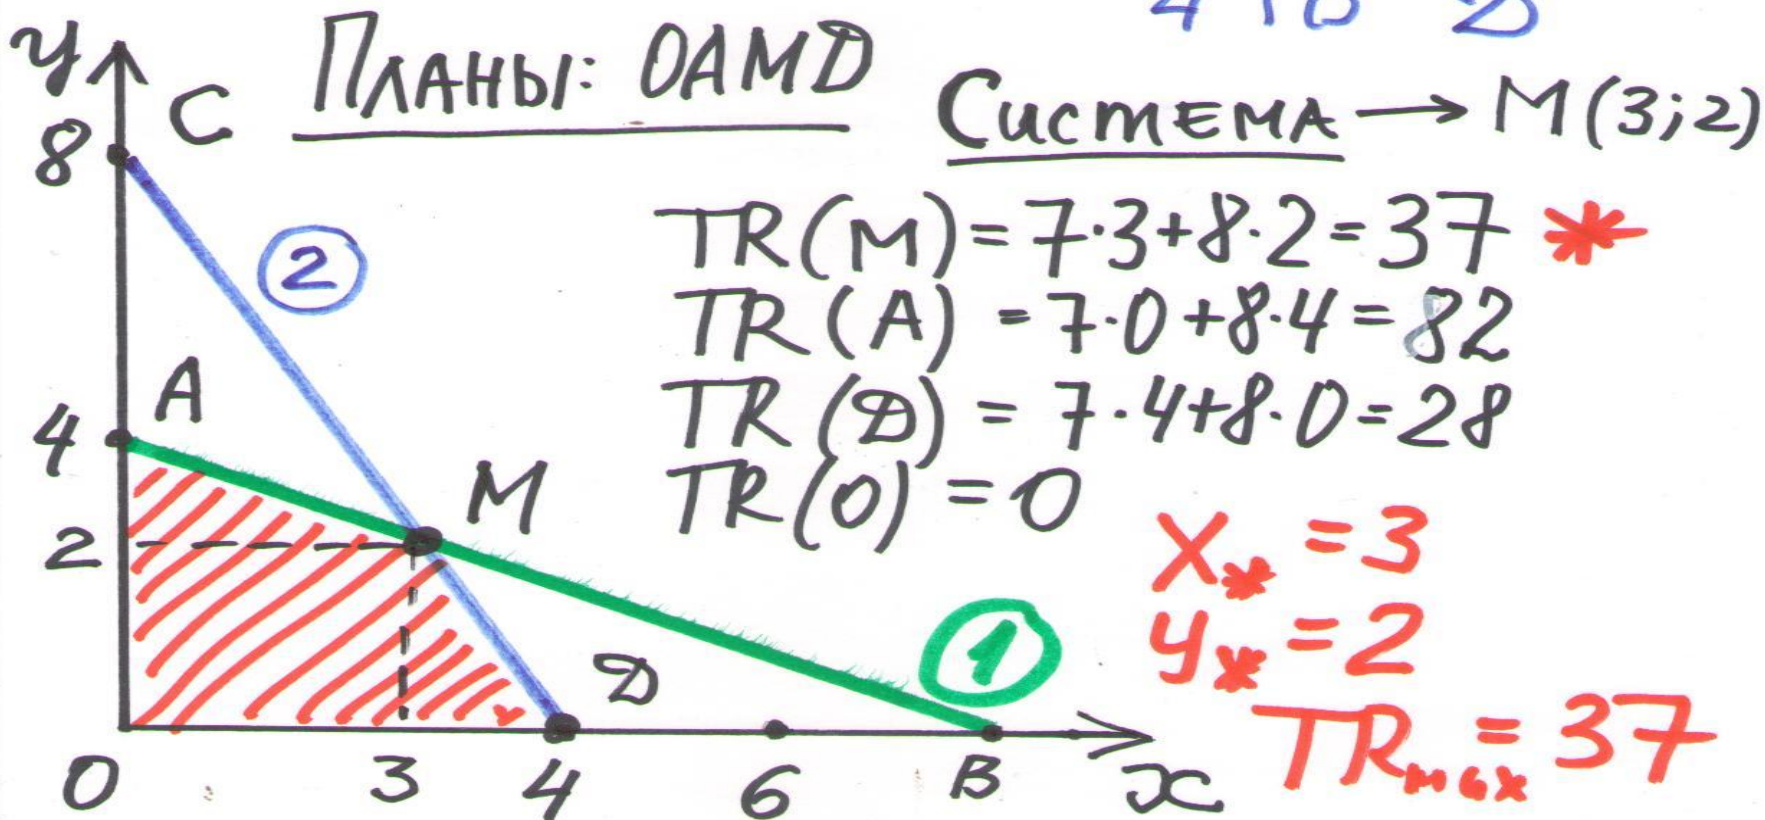 Планы: ОАМД
Система → М(3;2)
TR(M) = 7·3+8·2=37 *
TR(A) = 7·0+8·4=82
TR(Д) = 7·4+8·0=28
TR(0) = 0
X* = 3
У* = 2
TRmax = 37
y
8
C
2
A
4
M
2
1
Д
0
3
4
6
B
x